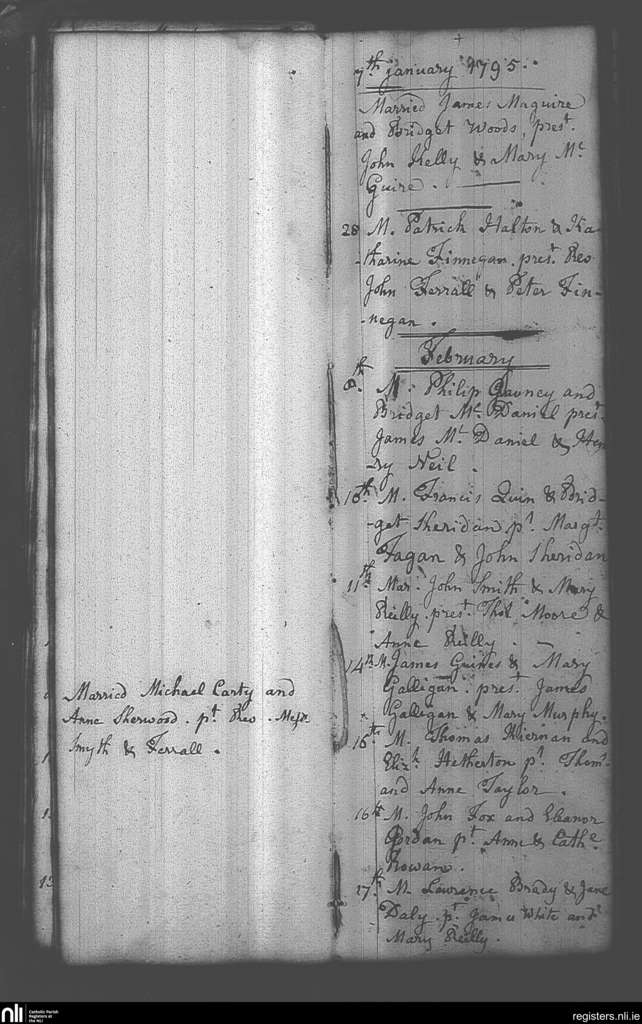 Married Michael Carty and
Anne Sherwood . pt Rev . Messrs
Smyth & Ferrall .
7th january 1795 .
Married James Maguire
and Bridget Woods, prest.
John Kelly & Mary Mc
Guire .
28 M. Patrick Halton & Ka-
-tharine Finnegan . prest. Rev
John Ferrall & Peter Fin-
-negan .
February
8th. M. Philip Gavney and
Bridget Mc. Daniel prest.
James Mc. Daniel & Hen
-ry Neil .
10th M. Francis Quin & Brid-
-get Sheridan pt. Margt.
Fagan & John Sheridan
11th Mar. John Smith & Mary
Reilly . prest. Thos. Moore &
Anne Reilly .
14th M. James Guines & Mary
Galligan . prest. James
Galligan & Mary Murphy .
15th M. Thomas Kiernan and
Elizh. Hetherton pt. Thoms.
and Anne Taylor .
16th M. John Fox and Eleanor
Gordan pt. Anne & Cathe.
Rowan .
17th M. Lawrence Brady & Jane
Daly . pt. James White and
Mary Reilly .
nli
Catholic Parish
Registers at
the NLI
registers.nli.ie